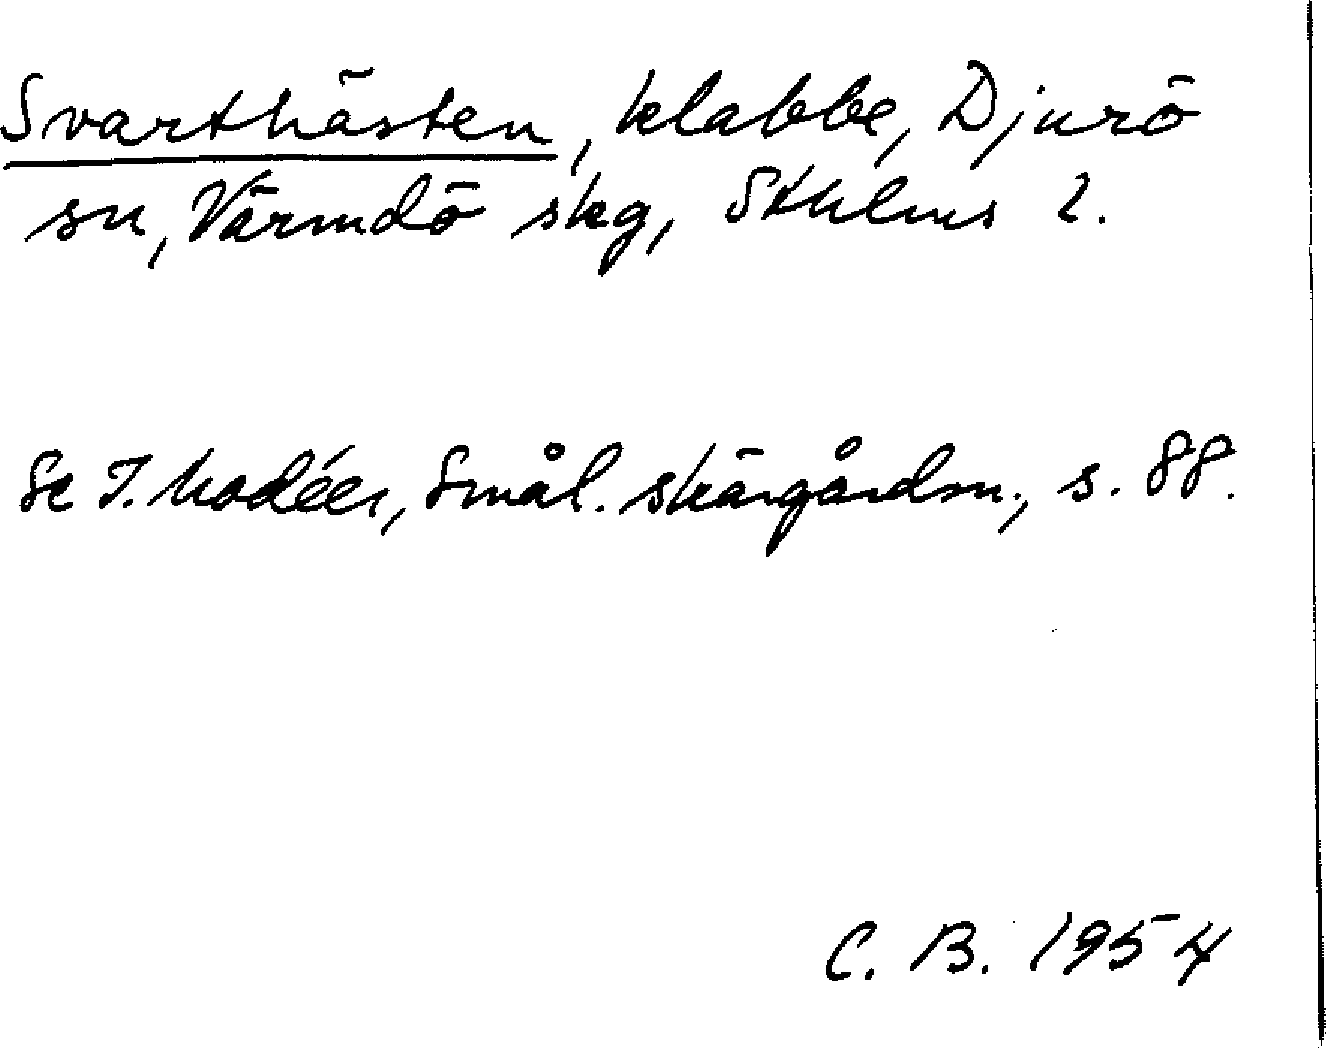 Svarthästen, klabbe, Djurö
sn, Värmdö skg, Sthlms l.
Se I. Modéer, Smål. skärgårdsn., s. 88.
C. B. 1954